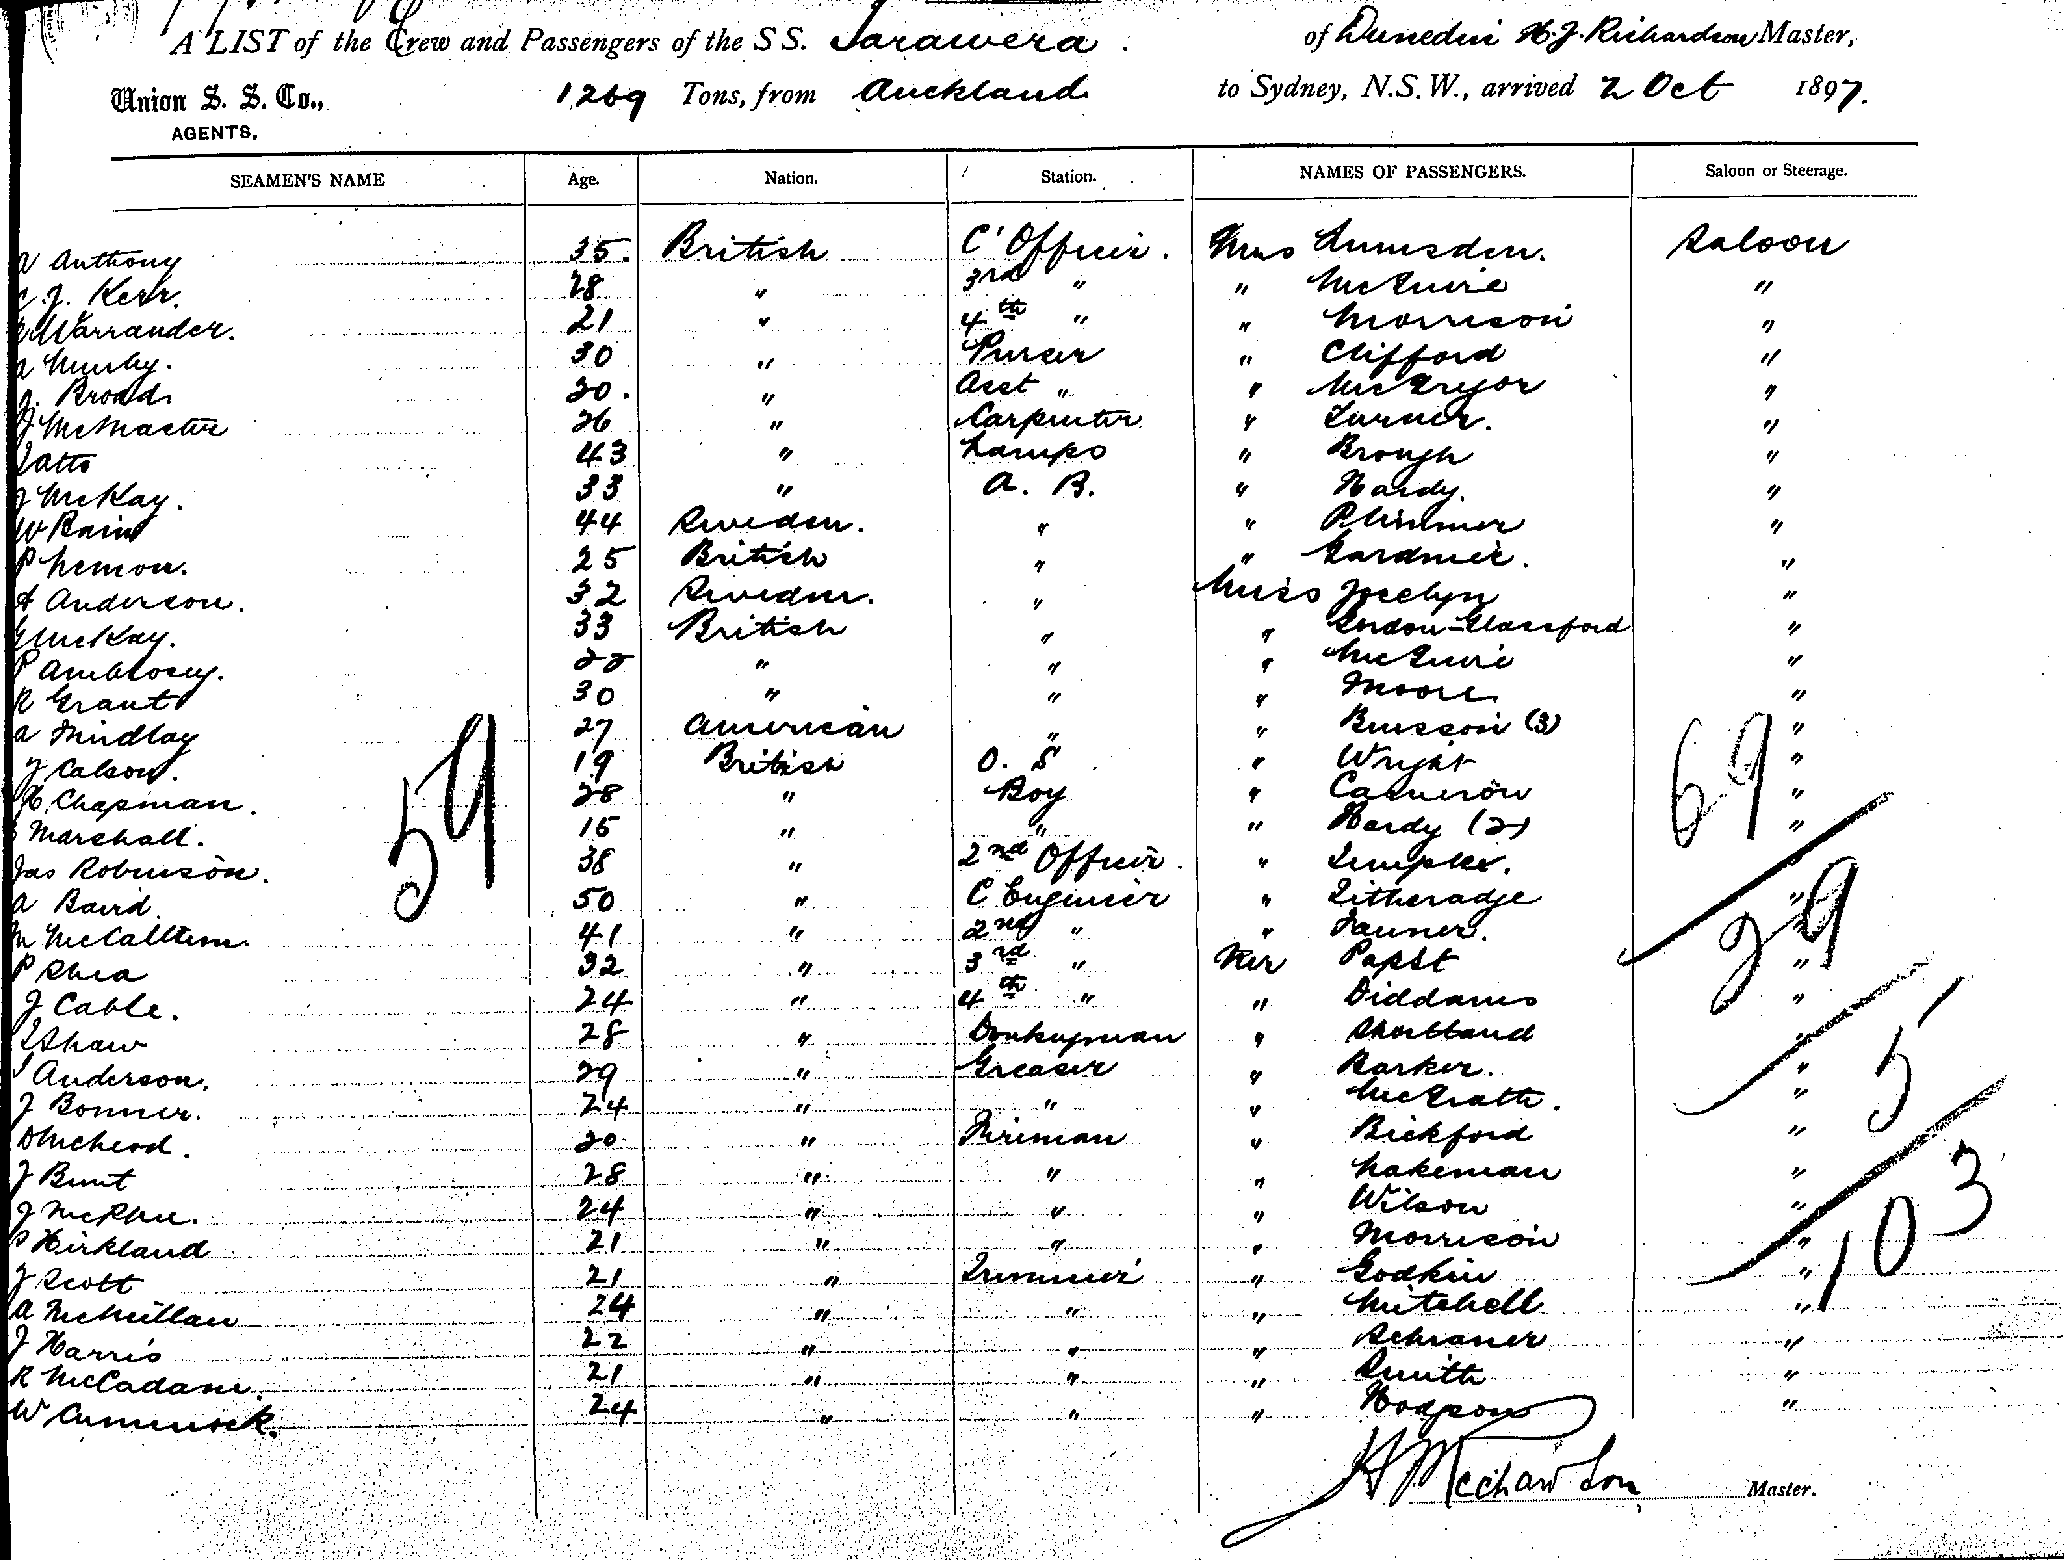 A LIST of the Crew and Passengers of the S S. Tarawera. of Dunedin H. J. Richardson Master,
Union S. S. Co., 1269 Tons, from Auckland to Sydney, N.S.W., arrived 2 Oct 1897.
AGENTS.
SEAMEN'S NAME Age. Nation. Station. NAMES OF PASSENGERS. Saloon or Steerage.
Anthony 35. British C' Officer. Mrs Lumsden. Saloon
J. Kerr. 28 " 3rd " " McGuire "
Warrander. 21 " 4th " " Morrison "
30 " Purser " Clifford "
Broad. 20. " Asst " " McGregor "
J McMaster 26 " Carpenter " Turner. "
43 " Lamps " Brough "
J McKay. 33 " A. B. " Hardy. "
W 44 Sweden. " " Plimmer "
P Lemon. 25 British " " Gardner. "
A Anderson. 32 Sweden. " Miss Jocelyn "
McKay. 33 British " " Gordon-Glassford "
P 22 " " " McGuire "
R Grant 30 " " " Moore "
A Findlay 27 American " " (3) "
J 19 British O. S " Wright "
H Chapman. 28 " Boy " Cameron "
Marshall. 15 " " " Hardy (2) "
Jas Robinson. 38 " 2nd Officer. " "
A Baird. 50 " C Engineer " Titheradge "
McCallum. 41 " 2nd " " "
P Shea 32 " 3rd " Mr Papst "
J Cable. 24 " 4th " " Diddams "
Shaw 28 " Donkeyman " Shortland "
Anderson. 29 " Greaser " Barker. "
J Bonner. 24 " " " McGrath. "
D McLeod. 20 " Fireman " Bickford "
J Bunt 28 " " " Lakeman "
J McPhee. 24 " " " Wilson "
Kirkland 21 " " " Morrison "
J Scott 21 " Trimmer " Godkin "
A McMillan 24 " " " Mitchell "
J Harris 22 " " " "
R McCadam. 21 " " " Smith "
W 24 " " " Hodgson "
59
69
29
5
103
H J Richardson Master.